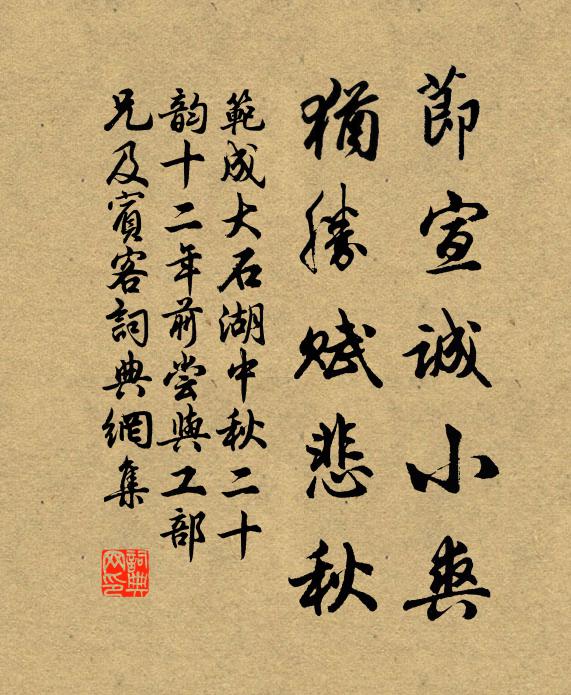 節宣誠小爽
猶勝賦悲秋
範成大石湖中秋二十
韵十二年前嘗與工部
兄及賓客詞典網集
詞典網印